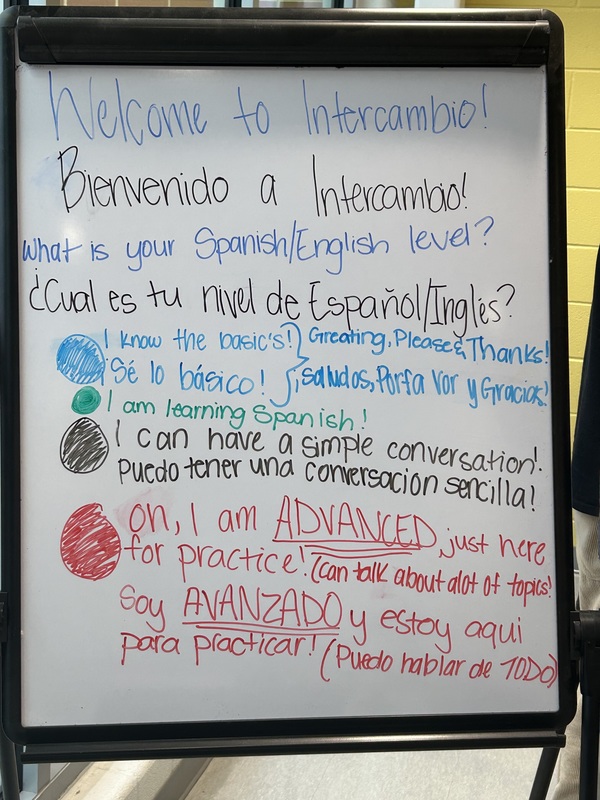 Welcome to Intercambio!
Bienvenido a Intercambio!
What is your Spanish/English level?
¿Cual es tu nivel de Español/Inglés?
I know the basic's! } Greating, Please & Thanks!
Sé lo básico! ¡Saludos, Porfa Vor y Gracias!
I am learning Spanish!
I can have a simple conversation!.
Puedo tener una conversación sencilla!
Oh, I am ADVANCED, just here
for practice! (Can talk about alot of topics!
Soy AVANZADO y estoy aqui
para practicar! (Puedo hablar de TODO)